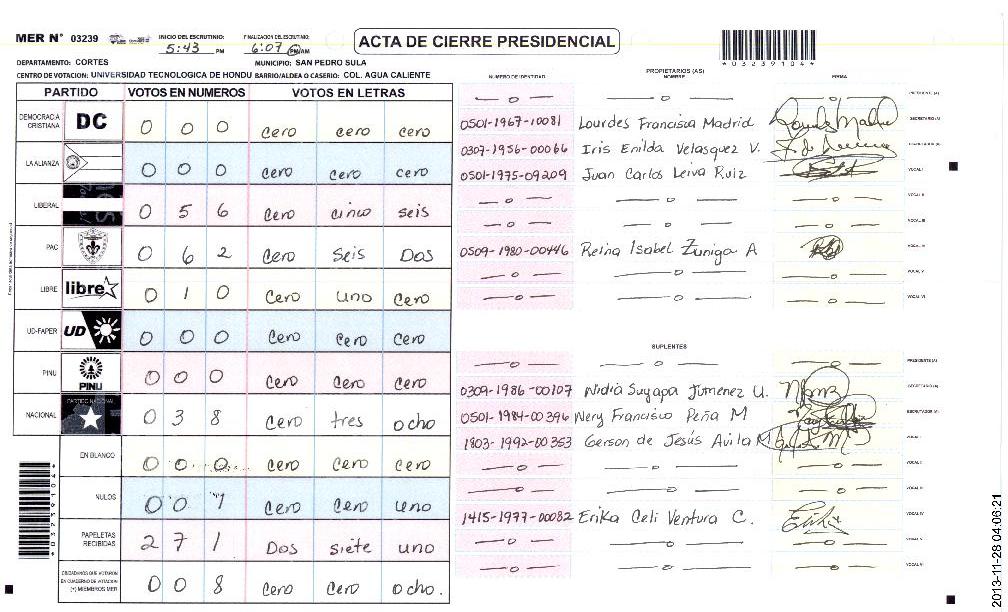 MER N° 03239
INICIO DEL ESCRUTINIO: 5:43 PM
FINALIZACION DEL ESCRUTINIO: 6:07 PM/AM
ACTA DE CIERRE PRESIDENCIAL
*03239104*
DEPARTAMENTO: CORTES
MUNICIPIO: SAN PEDRO SULA
CENTRO DE VOTACION: UNIVERSIDAD TECNOLOGICA DE HONDU BARRIO/ALDEA O CASERIO: COL. AGUA CALIENTE
PARTIDO VOTOS EN NUMEROS VOTOS EN LETRAS
DEMOCRACIA CRISTIANA DC 0 0 0 cero cero cero
LA ALIANZA 0 0 0 cero cero cero
LIBERAL 0 5 6 cero cinco seis
PAC 0 6 2 cero seis Dos
LIBRE libre 0 1 0 cero uno cero
UD-FAPER UD 0 0 0 cero cero cero
PINU PINU 0 0 0 cero cero cero
NACIONAL PARTIDO NACIONAL 0 3 8 cero tres ocho
EN BLANCO 0 0 0 cero cero cero
NULOS 0 0 1 cero cero uno
PAPELETAS RECIBIDAS 2 7 1 Dos siete uno
CIUDADANOS QUE VOTARON EN CUADERNO DE VOTACION (+) MIEMBROS MER 0 0 8 cero cero ocho.
PROPIETARIOS (AS)
NUMERO DE IDENTIDAD NOMBRE FIRMA
PRESIDENTE (A)
0501-1967-10081 Lourdes Francisca Madrid SECRETARIO (A)
0307-1956-00066 Iris Enilda Velasquez V. ESCRUTADOR (A)
0501-1975-09209 Juan Carlos Leiva Ruiz VOCAL I
VOCAL II
VOCAL III
0509-1980-00446 Reina Isabel Zuniga A VOCAL IV
VOCAL V
VOCAL VI
SUPLENTES
PRESIDENTE (A)
0309-1986-00107 Nidia Suyapa Jimenez U. SECRETARIO (A)
0501-1984-00396 Nery Francisco Peña M ESCRUTADOR (A)
1803-1992-00353 Gerson de Jesús Avila M VOCAL I
VOCAL II
VOCAL III
1415-1977-00082 Erika Celi Ventura C. VOCAL IV
VOCAL V
VOCAL VI
*03239104*
2013-11-28 04:06:21